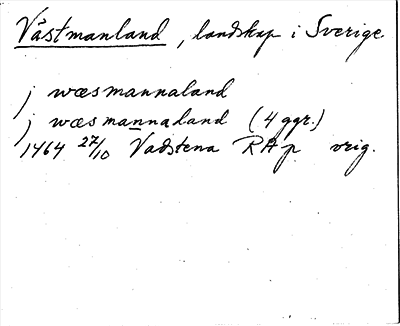 Västmanland, landskap i Sverige.
j wæsmannaland
j wæsmannaland (4 ggr.)
1464 27/10 Vadstena RAp orig.